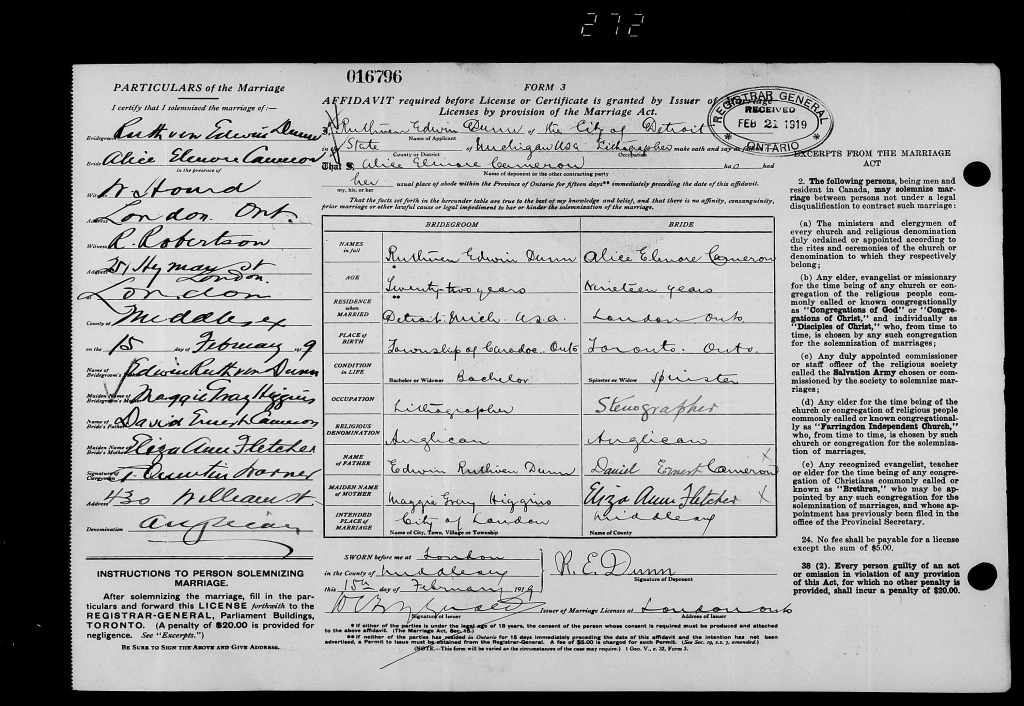 272
PARTICULARS of the Marriage
I certify that I solemnized the marriage of:—
Bridegroom Ruthven Edwin Dunn
Bride Alice Elenore Cameron
in the presence of
Witness W Hourd
Address London Ont.
Witness R. Robertson
Address Hyman St
London.
at London
County of Middlesex
on the 15 day of February 1919
Name of Bridegroom's Edwin Ruthven Dunn
Maiden Name of Bridegroom's Mother Maggie Gray Higgins
Name of Bride's Father David Ernest Cameron
Maiden Name of Bride's Mother Eliza Ann Fletcher
Signature of Clergyman Quintin Warner
Address 430 William St
Denomination Anglican
INSTRUCTIONS TO PERSON SOLEMNIZING
MARRIAGE.
After solemnizing the marriage, fill in the par-
ticulars and forward this LICENSE forthwith to the
REGISTRAR-GENERAL, Parliament Buildings,
TORONTO. (A penalty of $20.00 is provided for
negligence. See "Excerpts.")
BE SURE TO SIGN THE ABOVE AND GIVE ADDRESS.
016796
FORM 3
AFFIDAVIT required before License or Certificate is granted by Issuer of Marriage
Licenses by provision of the Marriage Act.
I, Ruthven Edwin Dunn of the City of Detroit
Name of Applicant
in the State of Michigan USA Lithographer make oath and say as follows
County or District Occupation
That Alice Elenore Cameron had had
Name of deponent or the other contracting party
her usual place of abode within the Province of Ontario for fifteen days** immediately preceding the date of this affidavit.
my, his, or her
That the facts set forth in the hereunder table are true to the best of my knowledge and belief, and that there is no affinity, consanguinity,
prior marriage or other lawful cause or legal impediment to bar or hinder the solemnization of the marriage.
BRIDEGROOM BRIDE
NAMES in full Ruthven Edwin Dunn Alice Elenore Cameron
AGE Twenty-two years Nineteen years
RESIDENCE when MARRIED Detroit Mich. U.S.A. London Ont
PLACE OF BIRTH Township of Caradoc. Ont Toronto. Ont.
CONDITION IN LIFE Bachelor or Widower Bachelor Spinster or Widow Spinster
OCCUPATION Lithographer Stenographer
RELIGIOUS DENOMINATION Anglican Anglican
NAME OF FATHER Edwin Ruthven Dunn David Ernest Cameron X
MAIDEN NAME OF MOTHER Maggie Gray Higgins Eliza Ann Fletcher X
INTENDED PLACE OF MARRIAGE City of London Middlesex
Name of City, Town, Village or Township Name of County
SWORN before me at London
in the County of Middlesex
this 15th day of February 1919
R. E. Dunn
Signature of Deponent
Signature of Issuer
Issuer of Marriage Licenses at London Ont
Address of Issuer
* If either of the parties is under the legal age of 18 years, the consent of the person whose consent is required must be produced and attached
to the above affidavit. (The Marriage Act, Sec. 15.)
** If neither of the parties has resided in Ontario for 15 days immediately preceding the date of this affidavit and the intention has not been
advertised, a Permit to Issue must be obtained from the Registrar-General. A fee of $5.00 is charged for such Permit. (See Sec. 19, s.s. 7, amended.)
(NOTE.—This form will be varied as the circumstances of the case may require.) 1 Geo. V., c. 32, Form 3.
REGISTRAR GENERAL
RECEIVED
FEB 21 1919
ONTARIO
EXCERPTS FROM THE MARRIAGE
ACT
2. The following persons, being men and
resident in Canada, may solemnize mar-
riage between persons not under a legal
disqualification to contract such marriage:
(a) The ministers and clergymen of
every church and religious denomination
duly ordained or appointed according to
the rites and ceremonies of the church or
denomination to which they respectively
belong;
(b) Any elder, evangelist or missionary
for the time being of any church or con-
gregation of the religious people com-
monly called or known congregationally
as "Congregations of God" or "Congre-
gations of Christ," and individually as
"Disciples of Christ," who, from time to
time, is chosen by any such congregation
for the solemnization of marriages;
(c) Any duly appointed commissioner
or staff officer of the religious society
called the Salvation Army chosen or com-
missioned by the society to solemnize mar-
riages;
(d) Any elder for the time being of the
church or congregation of religious people
commonly called or known congregational-
ly as "Farringdon Independent Church,"
who, from time to time, is chosen by such
church or congregation for the solemniza-
tion of marriages,
(e) Any recognized evangelist, teacher
or elder for the time being of any congre-
gation of Christians commonly called or
known as "Brethren," who may be ap-
pointed by any such congregation for the
solemnization of marriages, and whose ap-
pointment has previously been filed in the
office of the Provincial Secretary.
24. No fee shall be payable for a license
except the sum of $5.00.
38 (2). Every person guilty of an act
or omission in violation of any provision
of this Act, for which no other penalty is
provided, shall incur a penalty of $20.00.